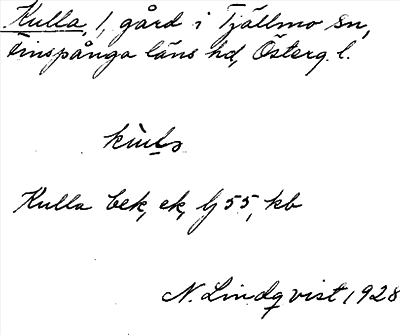 Kulla, 1, gård i Tjällmo sn,
Finspånga läns hd, Österg. l.
Kulla bek, ek, lj 55, kb
N. Lindqvist 1928